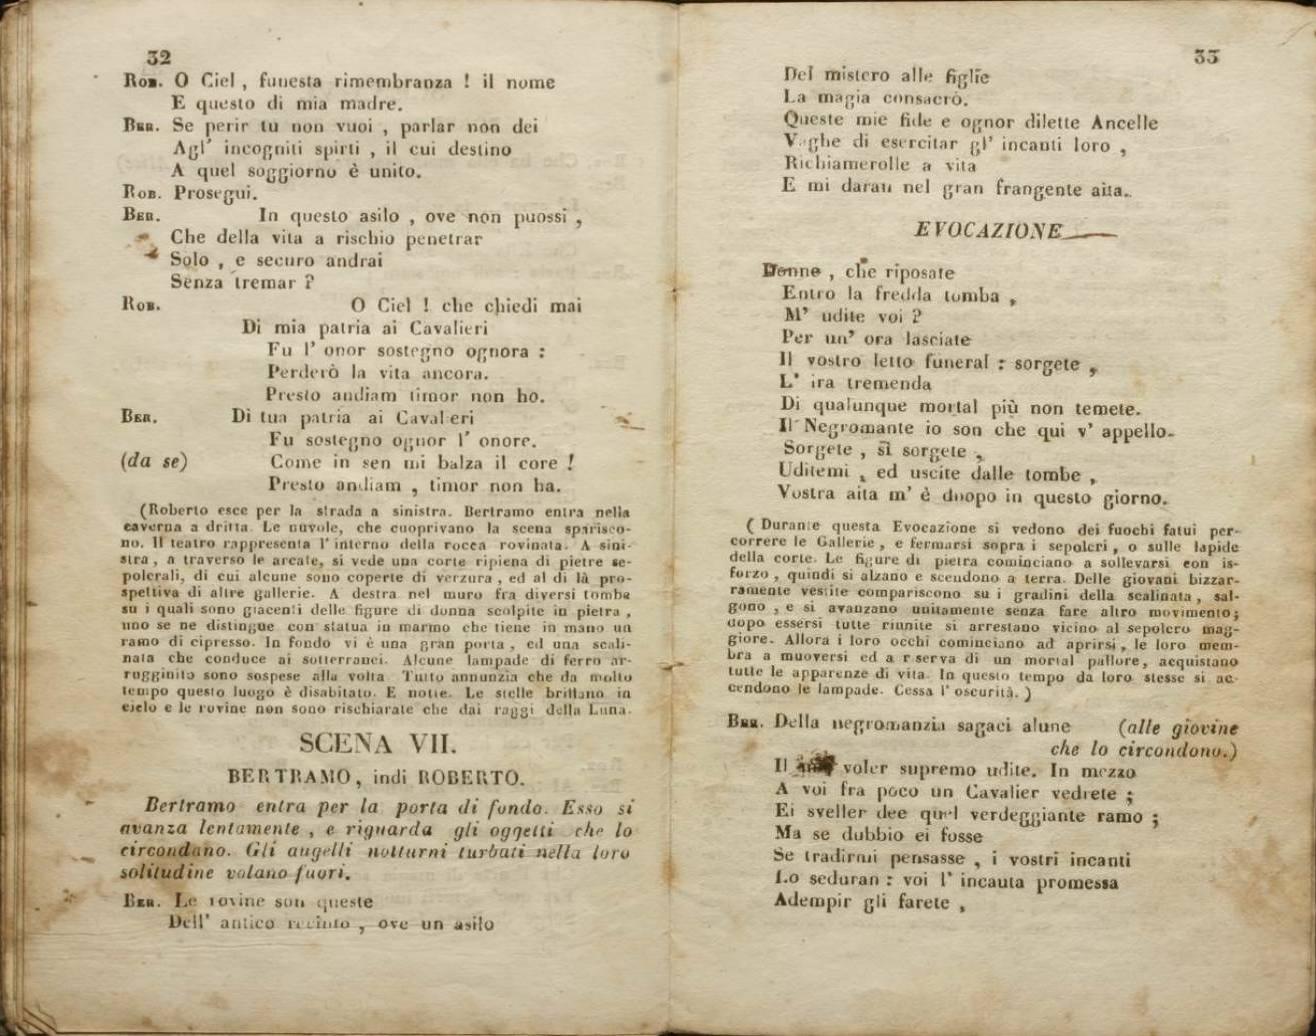 32
Rob. O Ciel, funesta rimembranza ! il nome
E questo di mia madre.
Ber. Se perir tu non vuoi, parlar non dei
Agl' incogniti spirti, il cui destino
A quel soggiorno è unito.
Rob. Prosegui.
Ber. In questo asilo, ove non puossi,
Che della vita a rischio penetrar
Solo, e securo andrai
Senza tremar ?
Rob. O Ciel ! che chiedi mai
Di mia patria ai Cavalieri
Fu l' onor sostegno ognora :
Perderò la vita ancora.
Presto andiam timor non ho.
Ber. Di tua patria ai Caval eri
Fu sostegno ognor l' onore.
(da se) Come in sen mi balza il core !
Presto andiam, timor non ha.
(Roberto esce per la strada a sinistra. Bertramo entra nella
caverna a dritta. Le nuvole, che cuoprivano la scena sparisco-
no. Il teatro rappresenta l' interno della rocca rovinata. A sini-
stra, a traverso le arcate, si vede una corte ripiena di pietre se-
polcrali, di cui alcune sono coperte di verzura, ed al di là pro-
spettiva di altre gallerie. A destra nel muro fra diversi tombe
su i quali sono giacenti delle figure di donna scolpite in pietra,
uno se ne distingue con statua in marmo che tiene in mano un
ramo di cipresso. In fondo vi è una gran porta, ed una scali-
nata che conduce ai sotterranei. Alcune lampade di ferro ar-
rugginito sono sospese alla volta Tutto annunzia che da molto
tempo questo luogo è disabitato. E notte. Le stelle brillano in
cielo e le rovine non sono rischiarate che dai raggi della Luna.
SCENA VII.
BERTRAMO, indi ROBERTO.
Bertramo entra per la porta di fondo. Esso si
avanza lentamente, e riguarda gli oggetti che lo
circondano. Gli augelli notturni turbati nella loro
solitudine volano fuori.
Ber. Le rovine son queste
Dell' antico recinto, ove un asilo
33
Del mistero alle figlie
La magia consacrò.
Queste mie fide e ognor dilette Ancelle
Vaghe di esercitar gl' incanti loro,
Richiamerolle a vita
E mi daran nel gran frangente aita.
EVOCAZIONE
Donne, che riposate
Entro la fredda tomba,
M' udite voi ?
Per un' ora lasciate
Il vostro letto funeral : sorgete,
L' ira tremenda
Di qualunque mortal più non temete.
Il Negromante io son che qui v' appello.
Sorgete, sì sorgete,
Uditemi, ed uscite dalle tombe,
Vostra aita m' è duopo in questo giorno.
( Durante questa Evocazione si vedono dei fuochi fatui per-
correre le Gallerie, e fermarsi sopra i sepolcri, o sulle lapide
della corte. Le figure di pietra cominciano a sollevarsi con is-
forzo, quindi si alzano e scendono a terra. Delle giovani bizzar-
ramente vestite compariscono su i gradini della scalinata, sal-
gono, e si avanzano unitamente senza fare altro movimento;
dopo essersi tutte riunite si arrestano vicino al sepolcro mag-
giore. Allora i loro occhi cominciano ad aprirsi, le loro mem-
bra a muoversi ed a r serva di un mortal pallore, acquistano
tutte le apparenze di vita. In questo tempo da loro stesse si ac-
cendono le lampade. Cessa l' oscurità. )
Ber. Della negromanzia sagaci alune (alle giovine
che lo circondono.)
Il voler supremo udite. In mezzo
A voi fra poco un Cavalier vedrete ;
Ei sveller dee quel verdeggiante ramo ;
Ma se dubbio ei fosse
Se tradirmi pensasse, i vostri incanti
Lo seduran : voi l' incauta promessa
Adempir gli farete,